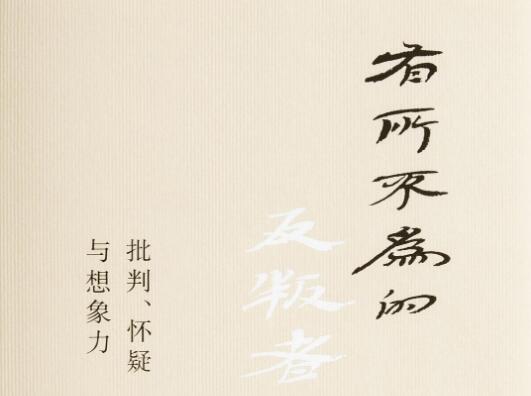 有所不為的
反叛者
批判、怀疑
与想象力